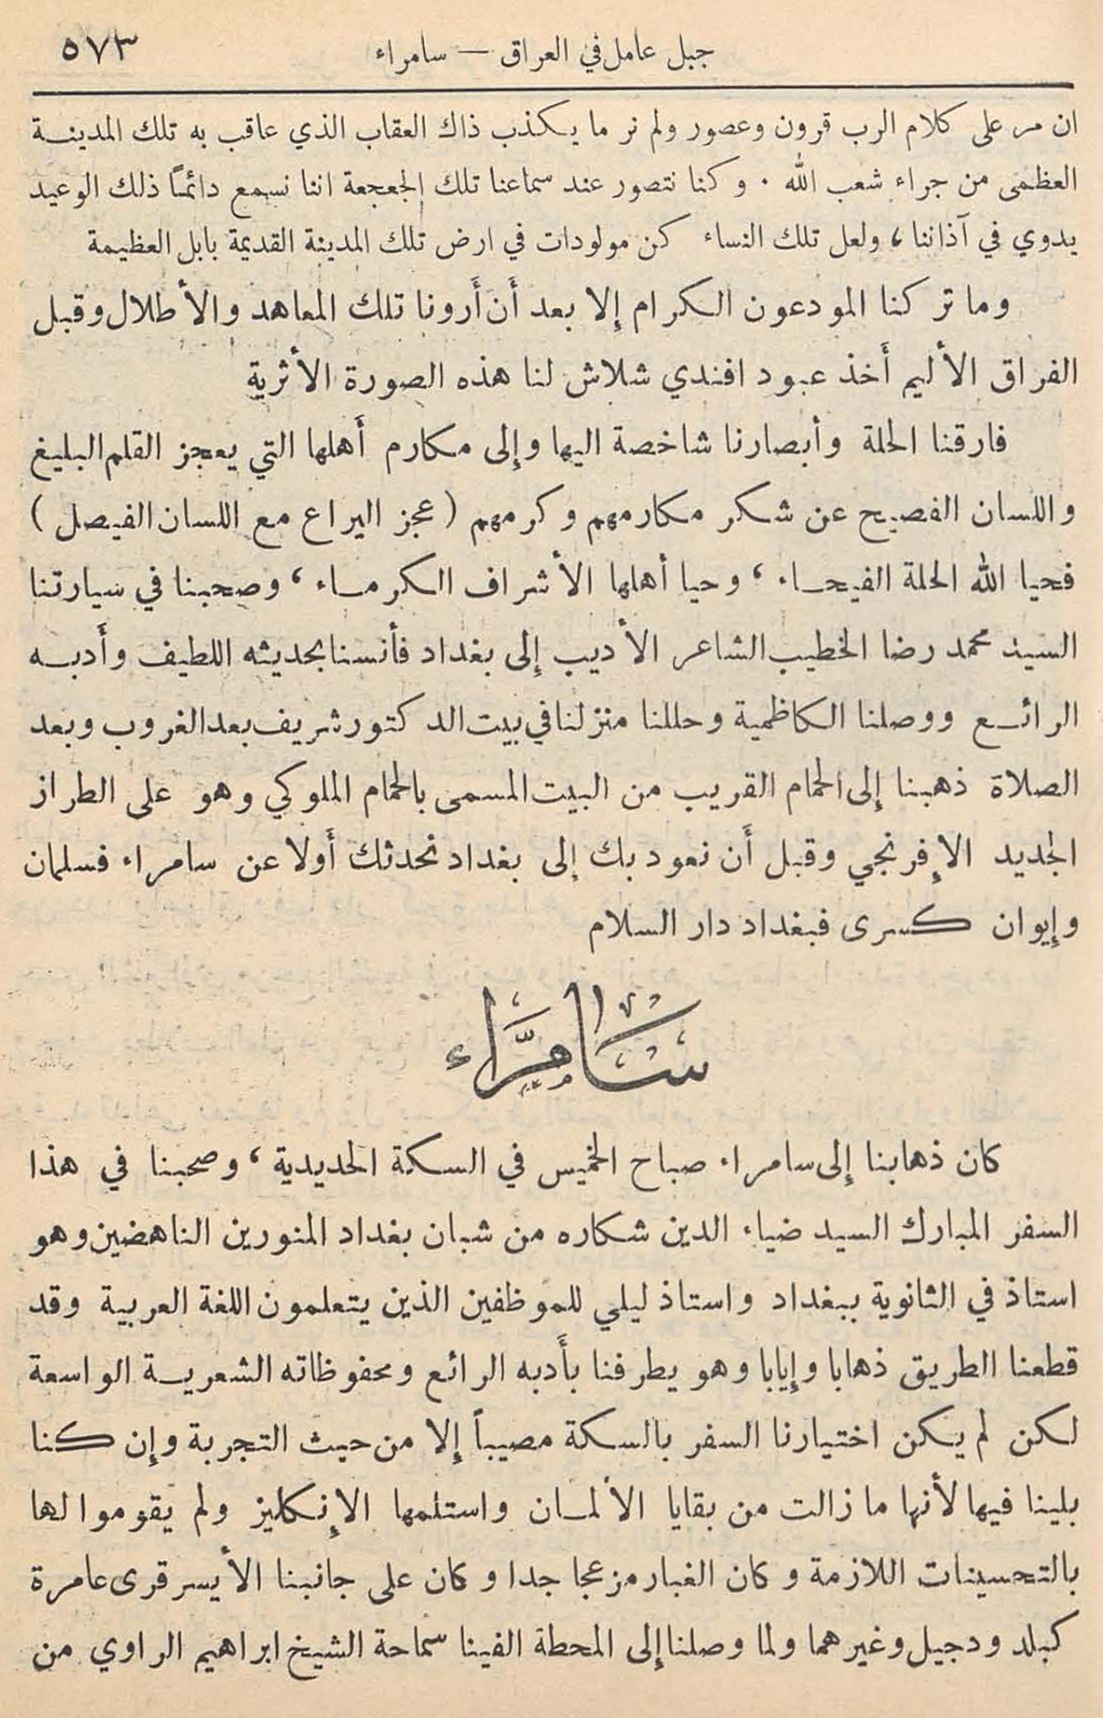 جبل عامل في العراق — سامراء ٥٧٣
ان مر على كلام الرب قرون وعصور ولم نر ما يكذب ذاك العقاب الذي عاقب به تلك المدينة
العظمى من جراء شعب الله . وكنا نتصور عند سماعنا تلك الجعجعة اننا نسمع دائمًا ذلك الوعيد
يدوي في آذاننا ، ولعل تلك النساء كن مولودات في ارض تلك المدينة القديمة بابل العظيمة
وما تركنا المودعون الكرام إلا بعد أن أرونا تلك المعاهد والأطلال وقبل
الفراق الأليم أخذ عبود افندي شلاش لنا هذه الصورة الأثرية
فارقنا الحلة وأبصارنا شاخصة اليها وإلى مكارم أهلها التي يعجز القلم البليغ
واللسان الفصيح عن شكر مكارمهم وكرمهم ( عجز اليراع مع اللسان الفيصل )
فحيا الله الحلة الفيحاء ، وحيا أهلها الأشراف الكرماء ، وصحبنا في سيارتنا
السيد محمد رضا الخطيب الشاعر الأديب إلى بغداد فأنسنا بحديثه اللطيف وأدبه
الرائع ووصلنا الكاظمية وحللنا منزلنا في بيت الدكتور شريف بعد الغروب وبعد
الصلاة ذهبنا إلى الحمام القريب من البيت المسمى بالحمام الملوكي وهو على الطراز
الجديد الإفرنجي وقبل أن نعود بك إلى بغداد نحدثك أولا عن سامراء فسلمان
وإيوان كسرى فبغداد دار السلام
سامرَّاء
كان ذهابنا إلى سامراء صباح الخميس في السكة الحديدية ، وصحبنا في هذا
السفر المبارك السيد ضياء الدين شكاره من شبان بغداد المنورين الناهضين وهو
استاذ في الثانوية ببغداد واستاذ ليلي للموظفين الذين يتعلمون اللغة العربية وقد
قطعنا الطريق ذهابا وإيابا وهو يطرفنا بأدبه الرائع ومحفوظاته الشعرية الواسعة
لكن لم يكن اختيارنا السفر بالسكة مصيباً إلا من حيث التجربة وإن كنا
بلينا فيها لأنها ما زالت من بقايا الألمان واستلمها الإنكليز ولم يقوموا لها
بالتحسينات اللازمة وكان الغبار مزعجا جدا وكان على جانبنا الأيسر قرى عامرة
كبلد ودجيل وغيرهما ولما وصلنا إلى المحطة الفينا سماحة الشيخ ابراهيم الراوي من